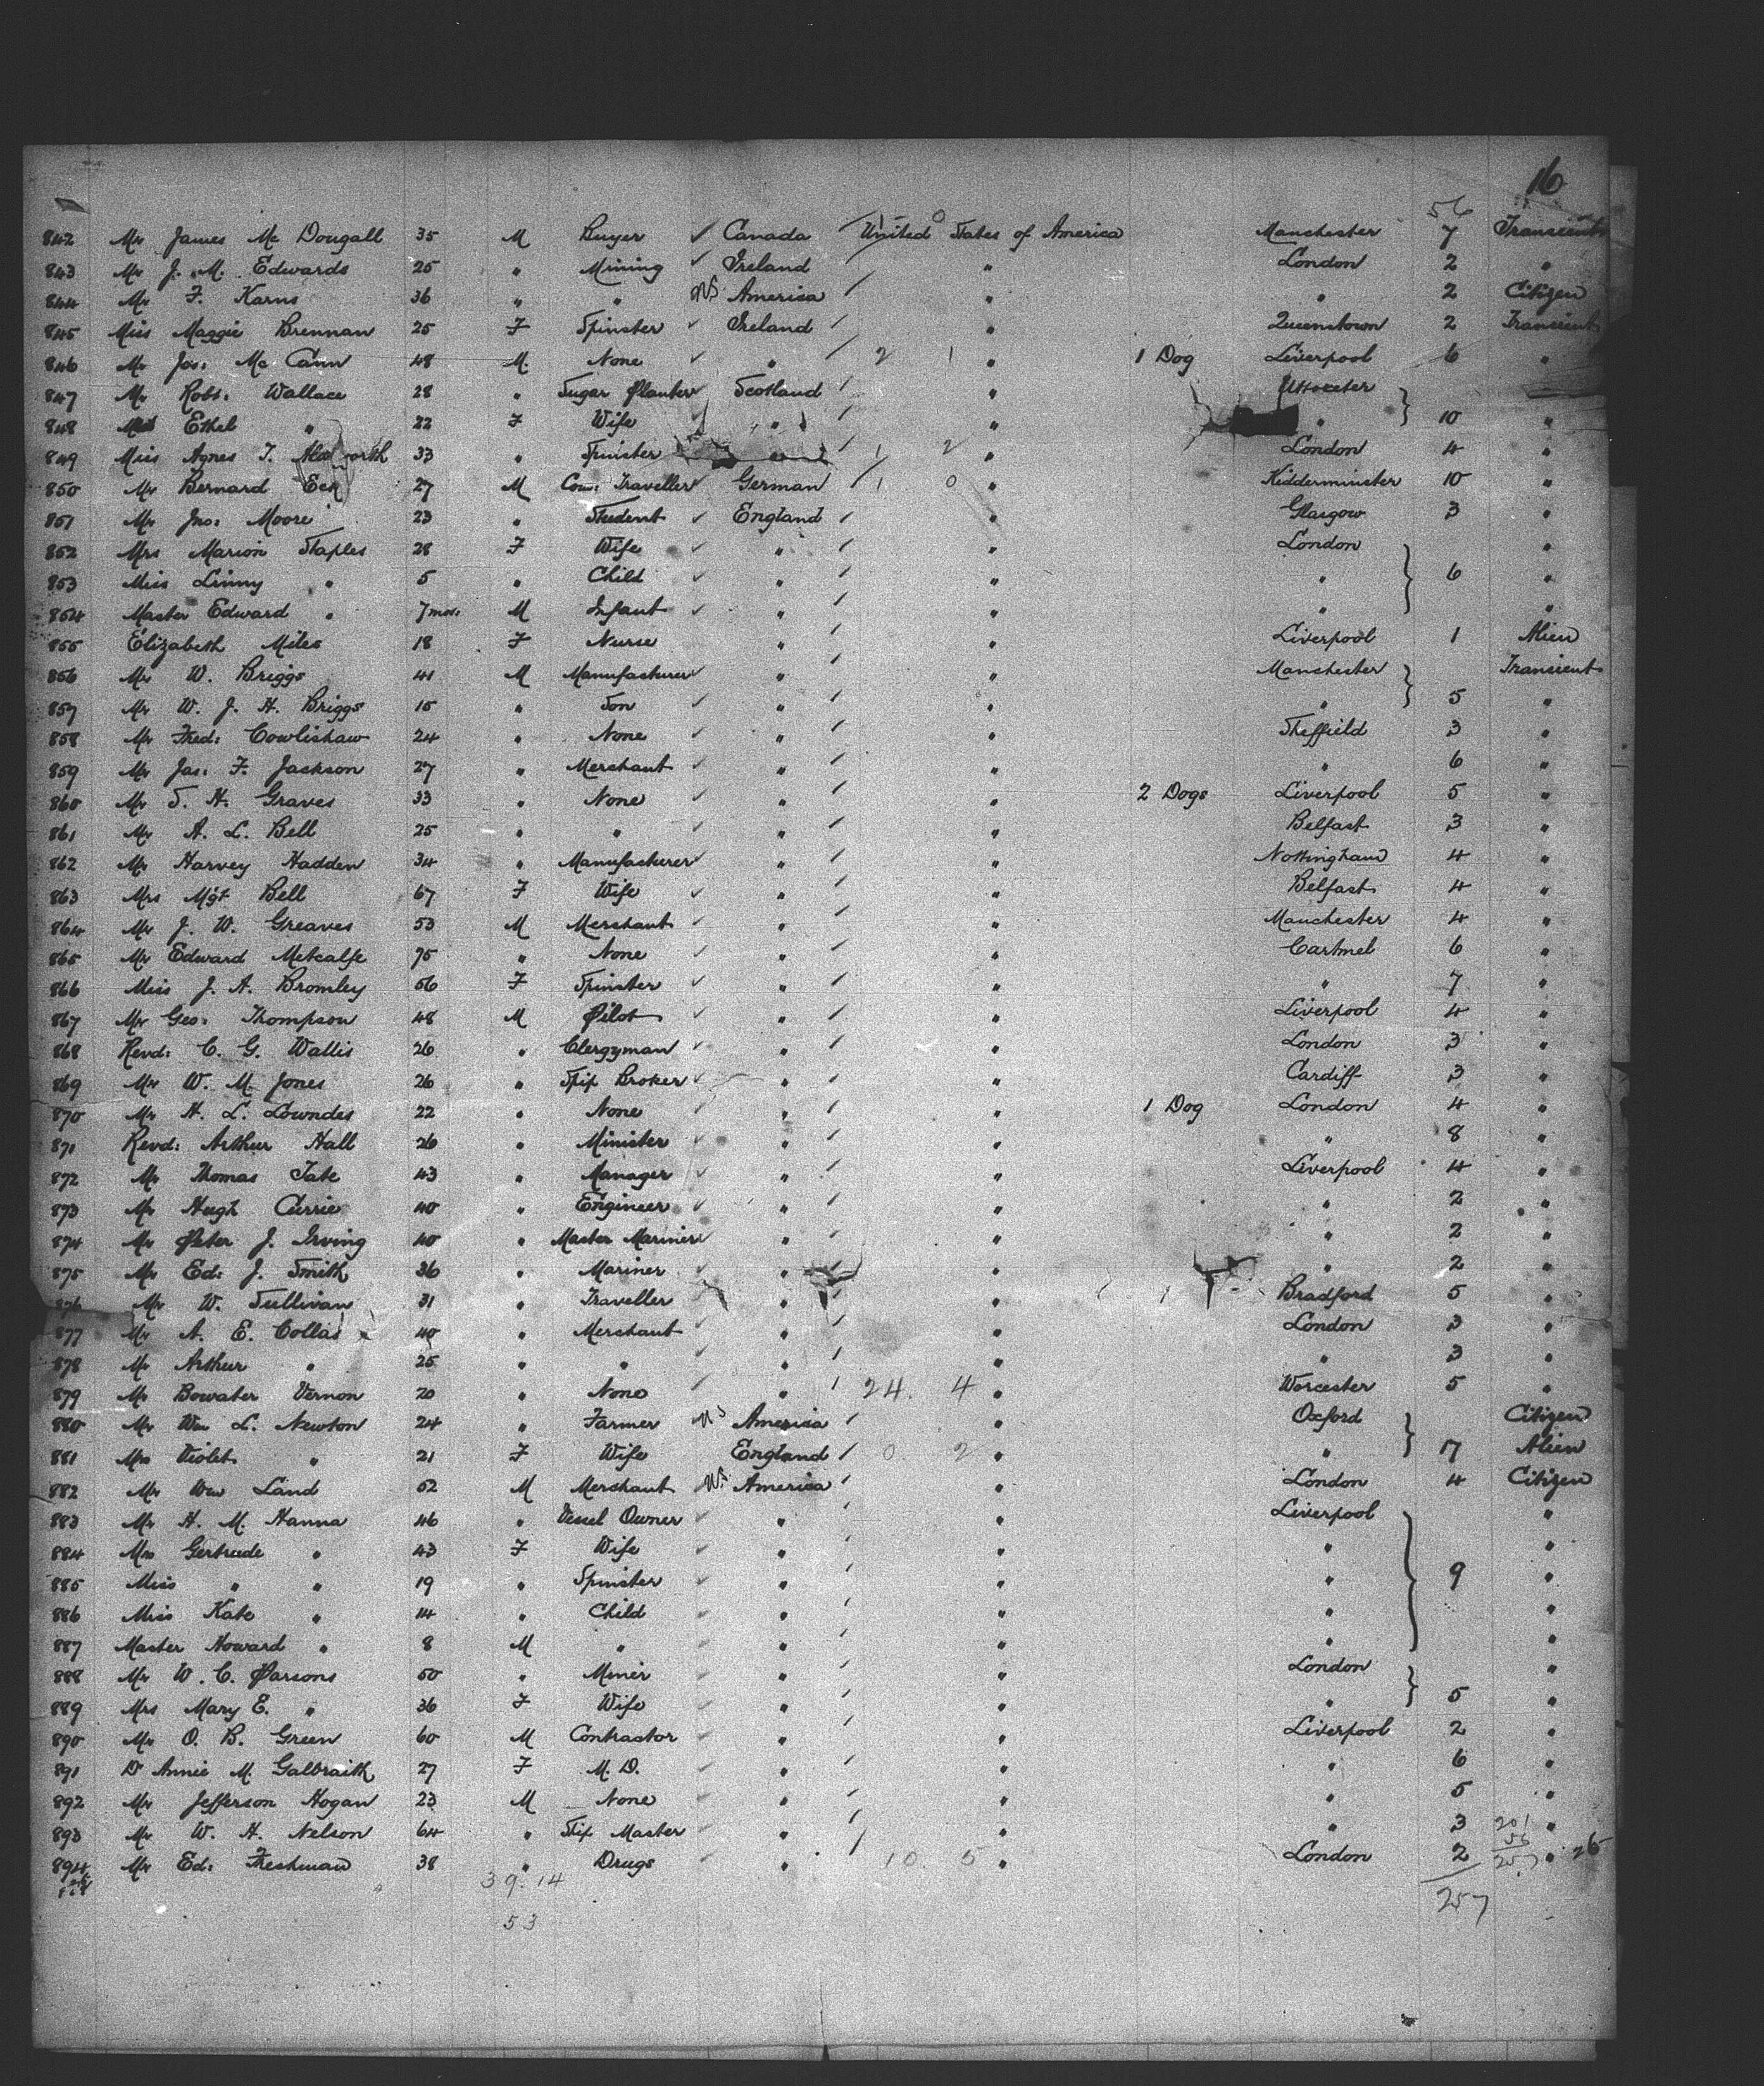 16
56
842 Mr James Mc Dougall 35 M Buyer Canada United States of America Manchester 7 Transient
843 Mr J. M. Edwards 25 " Mining Ireland " London 2 "
844 Mr F. Karns 36 " " US America " " 2 Citizen
845 Miss Maggie Brennan 25 F Spinster Ireland " Queenstown 2 Transient
846 Mr Jas: Mc Cann 48 M. None " 2 1 " 1 Dog Liverpool 6 "
847 Mr Robt: Wallace 28 " Sugar Planter Scotland " Uttoxeter
848 Ethel " 22 F Wife " " " 10 "
849 Miss Agnes T. 33 " Spinster 1 2 " London 4 "
850 Mr Bernard Eck 27 M Com: Traveller German 1 0 " Kidderminster 10 "
851 Mr Jno: Moore 23 " Student England " Glasgow 3 "
852 Mrs Marion Staples 28 F Wife " " London "
853 Miss Linny " 5 " Child " " " 6 "
854 Master Edward " 7 mos. M Infant " " " "
855 Elizabeth Miles 18 F Nurse " " Liverpool 1 Alien
856 Mr W. Briggs 41 M Manufacturer " " Manchester Transient
857 Mr W. J. H. Briggs 15 " Son " " " 5 "
858 Mr Fred: Cowlishaw 24 " None " " Sheffield 3 "
859 Mr Jas: F. Jackson 27 " Merchant " " " 6 "
860 Mr S. H. Graves 33 " None " " 2 Dogs Liverpool 5 "
861 Mr A. L. Bell 25 " " " " Belfast 3 "
862 Mr Harvey Hadden 34 " Manufacturer " " Nottingham 4 "
863 Mrs Mgt Bell 67 F Wife " " Belfast 4 "
864 Mr J. W. Greaves 53 M Merchant " " Manchester 4 "
865 Mr Edward Metcalfe 75 " None " " Cartmel 6 "
866 Miss J. A. Bromley 56 F Spinster " " " 7 "
867 Mr Geo: Thompson 48 M Pilot " " Liverpool 4 "
868 Revd: C. G. Wallis 26 " Clergyman " " London 3 "
869 Mr W. M. Jones 26 " Ship Broker " " Cardiff 3 "
870 Mr H. L. Lowndes 22 " None " " 1 Dog London 4 "
871 Revd: Arthur Hall 26 " Minister " " " 8 "
872 Mr Thomas Tate 43 " Manager " " Liverpool 4 "
873 Mr Hugh Currie 40 " Engineer " " " 2 "
874 Mr Peter J. Irving 40 " Master Mariner " " " 2 "
875 Mr Ed: J. Smith 36 " Mariner " " " 2 "
876 Mr W. Sullivan 31 " Traveller " " Bradford 5 "
877 Mr A. E. Collas 40 " Merchant " " London 3 "
878 Mr Arthur " 25 " " " " " 3 "
879 Mr Bowater Vernon 20 " None " 24. 4 " Worcester 5 "
880 Mr Wm L. Newton 24 " Farmer US America " Oxford Citizen
881 Mrs Violet " 21 F Wife England 0 2 " " 17 Alien
882 Mr Wm Land 52 M Merchant US America " London 4 Citizen
883 Mr H. M. Hanna 46 " Vessel Owner " " Liverpool "
884 Mrs Gertrude " 43 F Wife " " " "
885 Miss " " 19 " Spinster " " " 9 "
886 Miss Kate " 14 " Child " " " "
887 Master Howard " 8 M " " " " "
888 Mr W. C. Parsons 50 " Miner " " London "
889 Mrs Mary E. " 36 F Wife " " " 5 "
890 Mr O. B. Green 60 M Contractor " " Liverpool 2 "
891 Dr Annie M. Galbraith 27 F M. D. " " " 6 "
892 Mr Jefferson Hogan 23 M None " " " 5 "
893 Mr W. H. Nelson 64 " Ship Master " " " 3 201 "
894 Mr Ed: Freshman 38 " Drugs " 10. 5 " London 2 56 257 "
39. 14 257
53